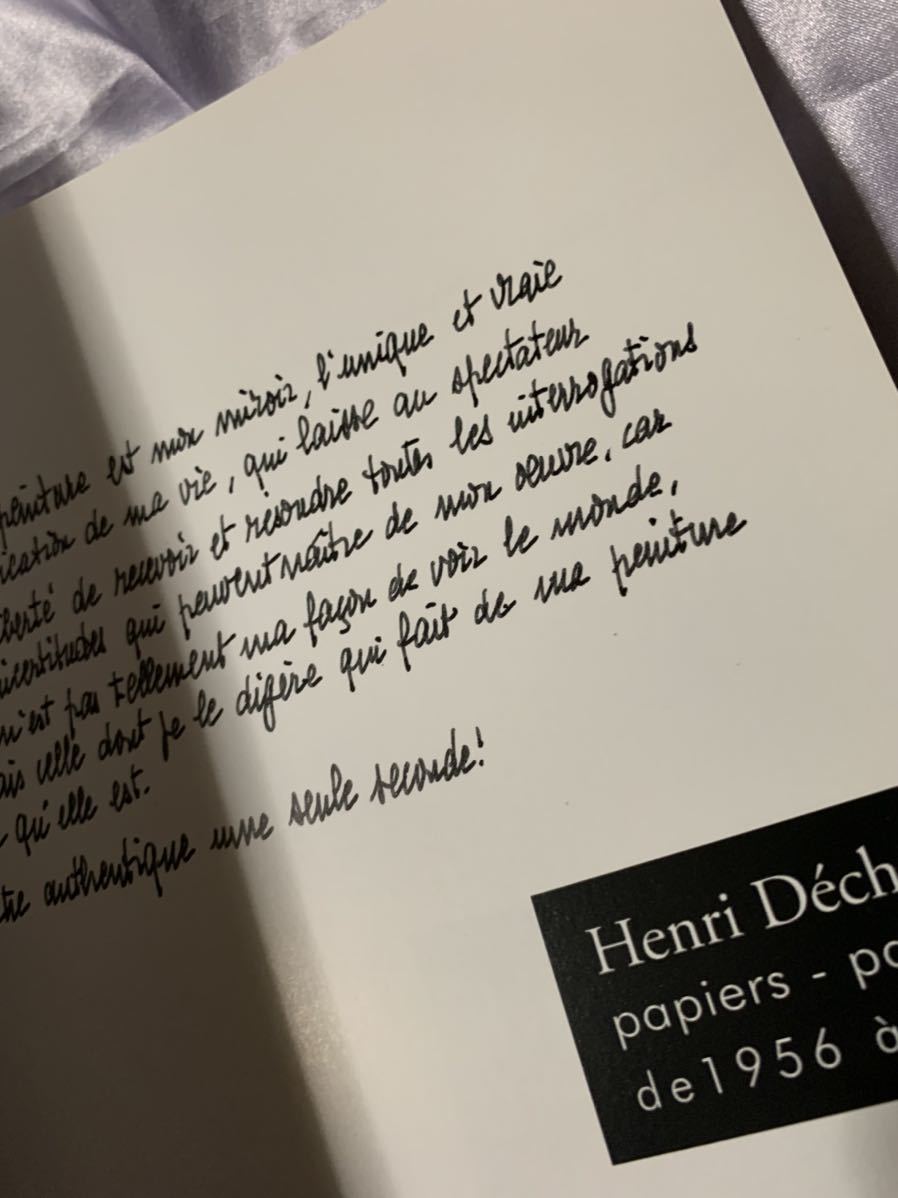 peinture est mon miroir, l'unique et vraie
ication de ma vie, qui laisse au spectateur
iberté de recevoir et resoudre toutes les interrogations
incertitudes qui peuvent naître de mon oeuvre, car
n'est pas tellement ma façon de voir le monde,
ais celle dont je le digère qui fait de ma peinture
qu'elle est.
tre authentique une seule seconde!
Henri Déch
papiers - pa
de1956 à